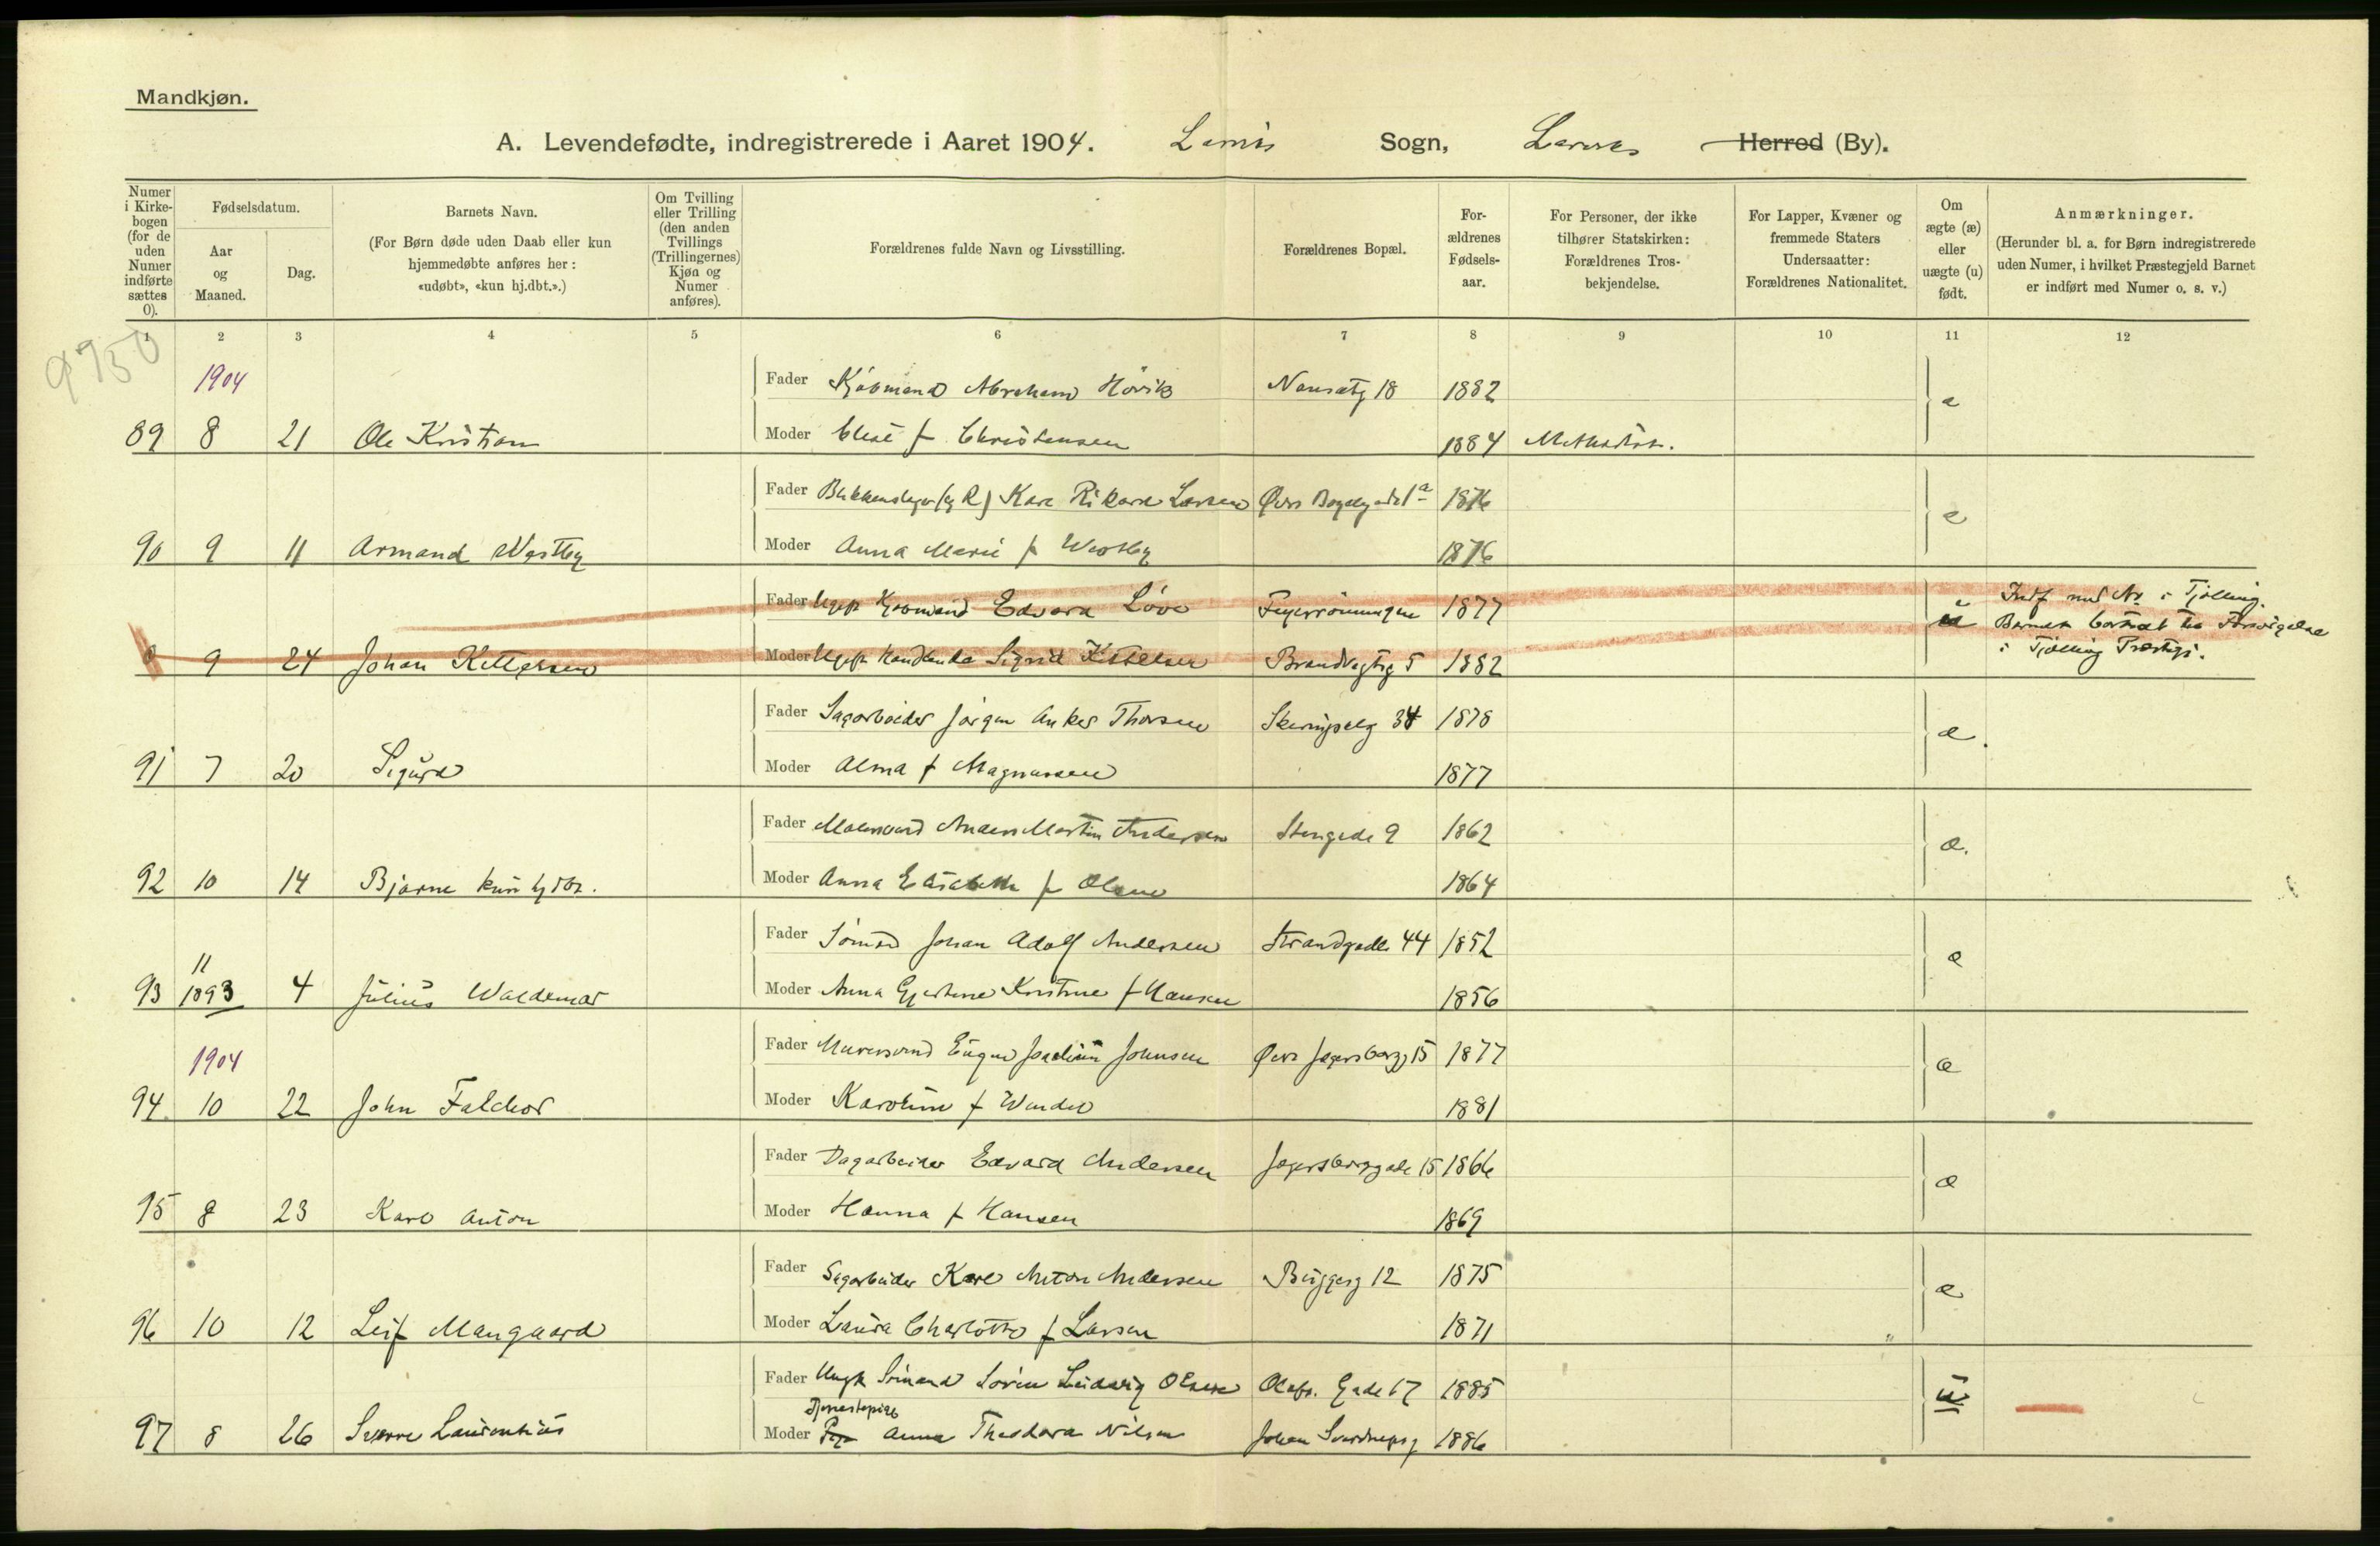 Mandkjøn.
A. Levendefødte, indregistrerede i Aaret 1904. Sogn, Herred (By).
Numer i Kirkebogen (for de uden Numer indførte sættes 0).
Fødselsdatum.
Aar og Maaned.
Dag.
Barnets Navn.
(For Børn døde uden Daab eller kun hjemmedøbte anføres her: «udøbt», «kun hj.dbt.».)
Om Tvilling eller Trilling (den anden Tvillings (Trillingernes) Kjøn og Numer anføres).
Forældrenes fulde Navn og Livsstilling.
Forældrenes Bopæl.
Forældrenes Fødselsaar.
For Personer, der ikke tilhører Statskirken: Forældrenes Trosbekjendelse.
For Lapper, Kvæner og fremmede Staters Undersaatter: Forældrenes Nationalitet.
Om ægte (æ) eller uægte (u) født.
Anmærkninger.
(Herunder bl. a. for Børn indregistrerede uden Numer, i hvilket Præstegjeld Barnet er indført med Numer o. s. v.)
1 2 3 4 5 6 7 8 9 10 11 12
9750
1904
Fader Kjøbmand Abraham Hövik Nansetg 18 1882 æ
89 8 21 Ole Kristian Moder Elise f Christensen 1884 Methodist.
Fader Karl Rikard Larsen Øvre 1876 æ
90 9 11 Armand Westby Moder Anna Marie f Westby 1876
Fader Ugift Kjøbmand Edvard Løve 1877 u Indf med No i Tjølling.
0 9 24 Johan Kettelsen Moder Ugift Sigrid Kettelsen Brandvagtg 5 1882 Barnet bortsat til Forsørgelse
i Tjølling Præstgj.
Fader Sagarbeider Jørgen Anker Thorsen 34 1878 æ.
91 7 20 Sigurd Moder Alma f Magnussen 1877
Fader Malersvend Anders Martin Andersen Stengade 9 1862 æ.
92 10 14 Bjarne kun hjdbt. Moder Anna Elisabeth f Olsen 1864
Fader Sömand Johan Adolf Andersen Strandgade 44 1852 æ
11
93 1893 4 Julius Waldemar Moder Anna Kristine f Hansen 1856
1904
Fader Murersvend Eugen Joachim Johnsen Øvre Jegersborgg 15 1877 æ
94 10 22 John Falchor Moder Karoline f 1881
Fader Dagarbeider Edvard Andersen Jegersborggade 15 1866 æ
95 8 23 Karl Anton Moder Hanna f Hansen 1869
Fader Sagarbeider Karl Anton Andersen Bryggerg 12 1875 æ
96 10 12 Leif Mangaard Moder Laura Charlotte f Larsen 1871
Fader Ungk Sömand Sören Ludvig Olsen Olafs. Gade 17 1885 u
Tjenestepige
97 8 26 Sverre Laurentius Moder Pige Anna Theodora Nilsen Johan Sverdrupsg 1886